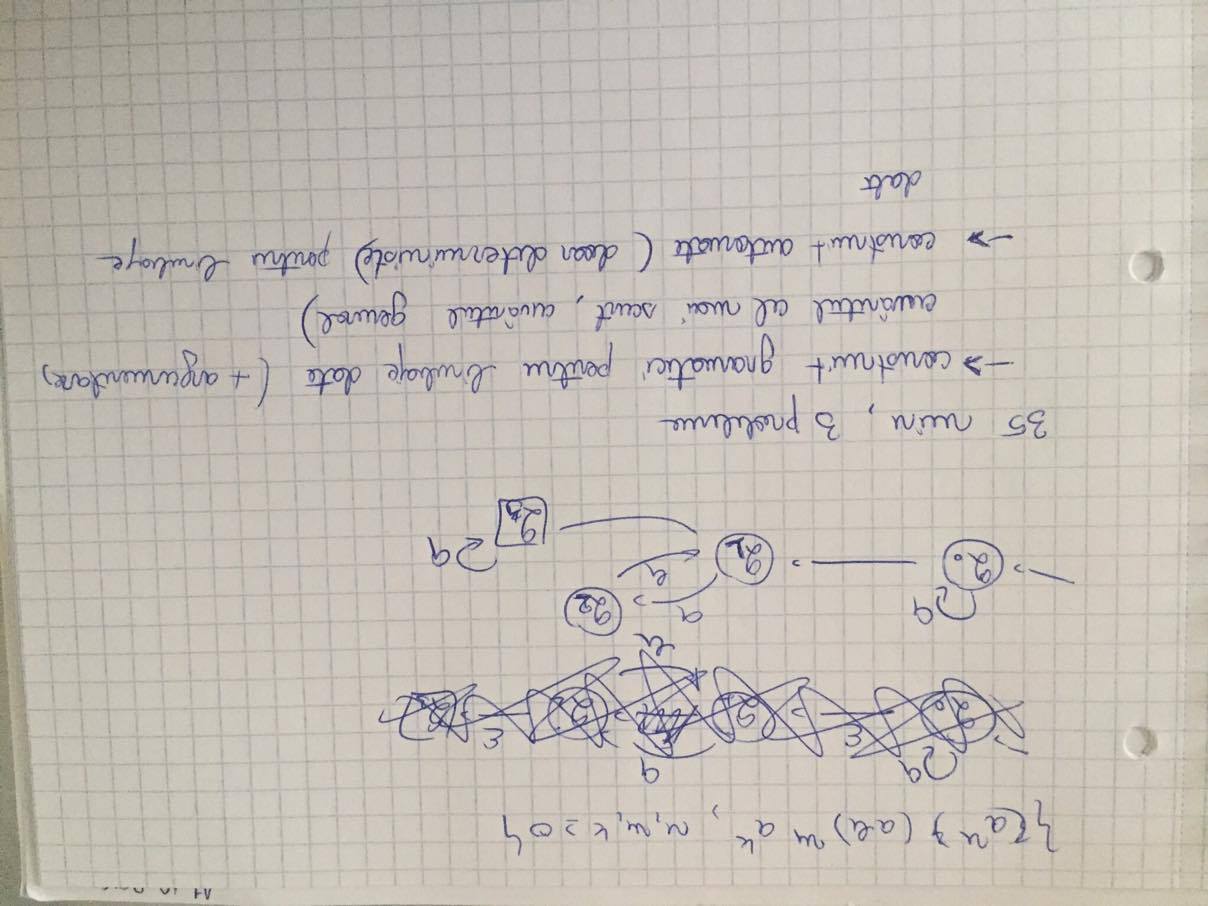 {a^n (ab)^m a^k, n,m,k ≥ 0}
a
ε
b
ε
q0
a
a
b
q2
q0
q1
q3
a
35 min, 3 probleme
→ construit gramatici pentru limbaje date (+ argumentare)
cuvântul cel mai scurt, cuvântul general)
→ construit automate (doar deterministe) pentru limbaje
date